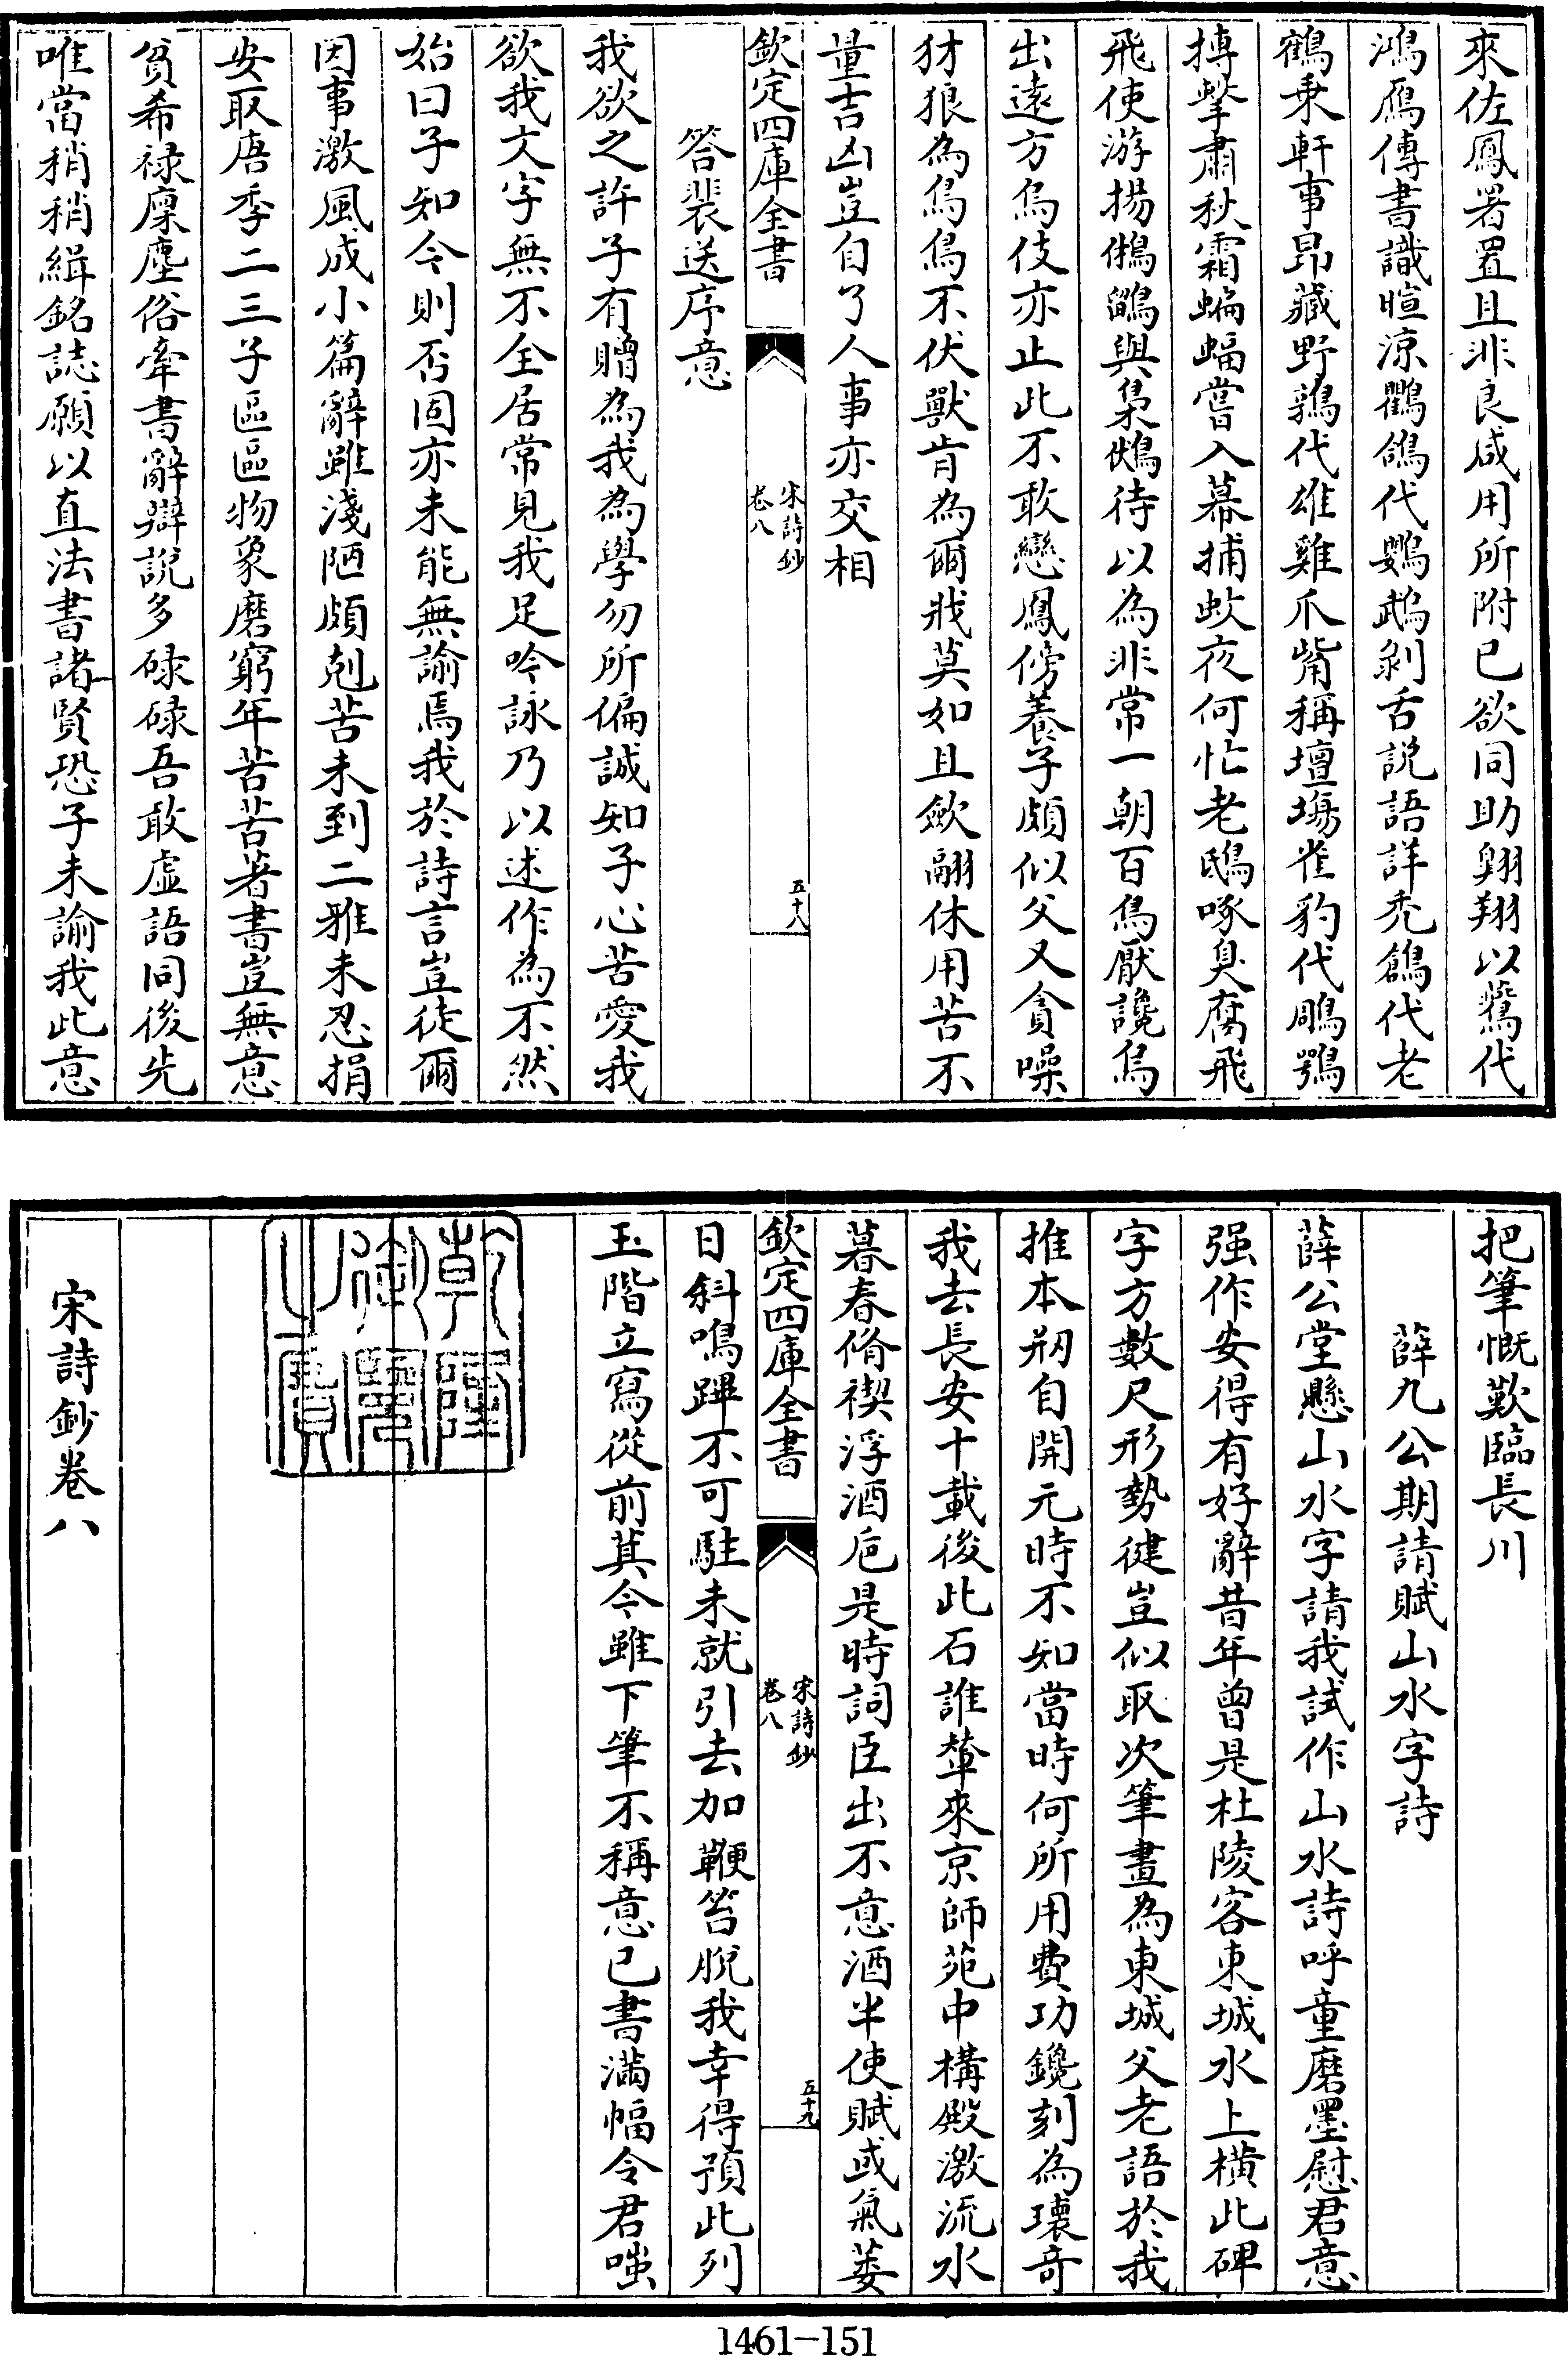 來佐鳳署置且非良咸用所附已欲同助翺翔以鶖代
鴻鴈傳書識暄涼鸜鵒代鸚鵡剝舌説語詳禿鶬代老
鶴乗軒事昻藏野鶉代雄雞爪觜稱壇場雀豹代鵰鶚
搏擊肅秋霜蝙蝠嘗入幕捕蚊夜何忙老鴟啄臭腐飛
飛使游揚鵂鶹與梟鴆待以為非常一朝百鳥厭讒烏
出遠方烏伎亦止此不敢戀鳳傍養子頗似父又貪噪
豺狼為鳥鳥不伏獸肯為爾戕莫如且歛翮休用苦不
量吉凶豈自了人事亦交相
欽定四庫全書
宋詩鈔
卷八
五十八
答裴送序意
我欲之許子有贈為我為學勿所偏誠知子心苦愛我
欲我文字無不全居常見我足吟詠乃以述作為不然
始曰子知今則否固亦未能無諭焉我於詩言豈徒爾
因事激風成小篇辭雖淺陋頗剋苦未到二雅未忍捐
安取唐季二三子區區物象磨窮年苦苦著書豈無意
貧希禄廩塵俗牽書辭辯説多碌碌吾敢虛語同後先
唯當稍稍緝銘誌願以直法書諸賢恐子未諭我此意
把筆慨歎臨長川
薛九公期請賦山水字詩
薛公堂懸山水字請我試作山水詩呼童磨墨慰君意
强作安得有好辭昔年曾是杜陵客東城水上橫此碑
字方數尺形勢健豈似取次筆畫為東城父老語於我
推本剏自開元時不知當時何所用費功鑱刻為瓌竒
我去長安十載後此石誰輦來京師苑中構殿激流水
暮春脩禊浮酒巵是時詞臣出不意酒半使賦或氣萎
欽定四庫全書
宋詩鈔
卷八
五十九
日斜鳴蹕不可駐未就引去加鞭笞脫我幸得預此列
玉階立寫從前萁今雖下筆不稱意已書滿幅令君嗤
乾隆御覽之寶
宋詩鈔卷八
1461-151